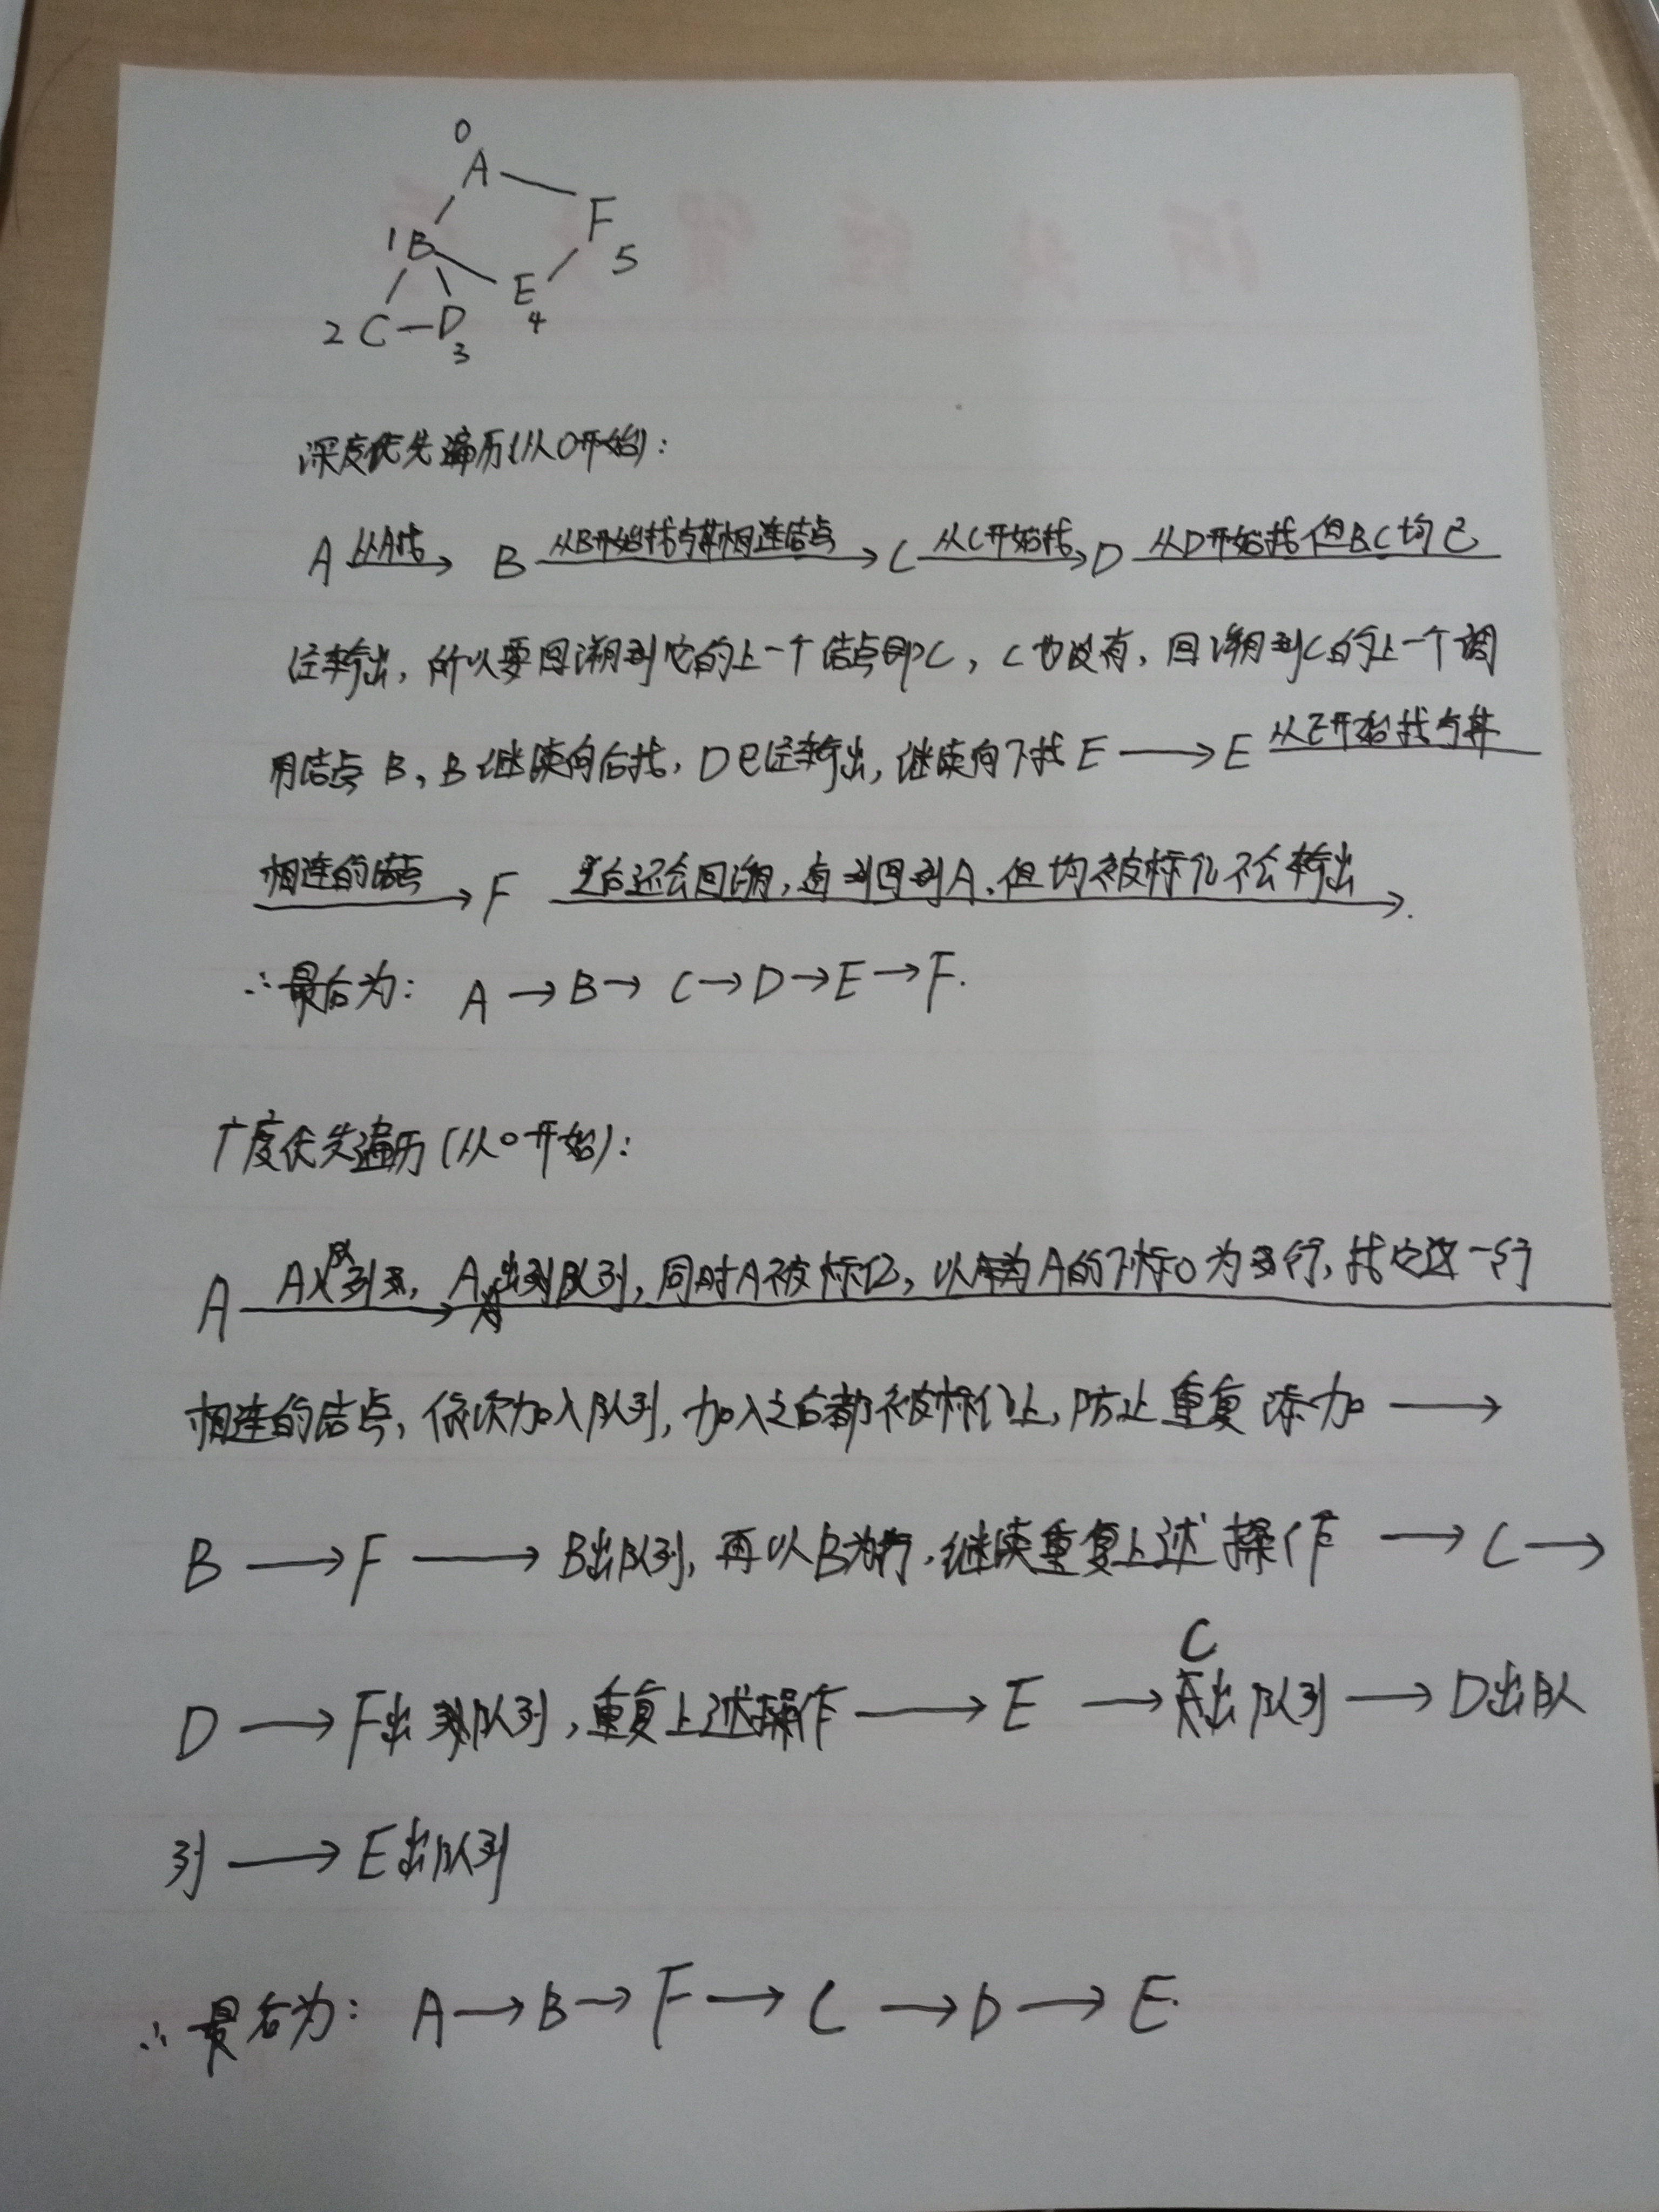 0
A
F
1 B
5
E
4
2 C D
3
深度优先遍历(从0开始):
A 从A找 B 从B开始找与其相连结点 C 从C开始找 D 从D开始找但B.C均已
经输出, 所以要回溯到它的上一个结点即C, C也没有, 回溯到C的上一个调
用结点 B, B继续向后找, D已经输出, 继续向下找E → E 从E开始找与其
相连的结点 → F 之后还会回溯, 直到回到A.但均被标记不会输出 →.
∴最后为: A → B → C → D → E → F.
广度优先遍历(从0开始):
A A入队列, A出队列, 同时A被标记, 以A的下标0为行, 找它这一行
相连的结点, 依次加入队列, 加入之后都被标记上, 防止重复添加 →
B → F → B出队列, 再以B为行, 继续重复上述操作 → C →
D → F出队列, 重复上述操作 → E → C出队列 → D出队
列 → E出队列
∴最后为: A → B → F → C → D → E.